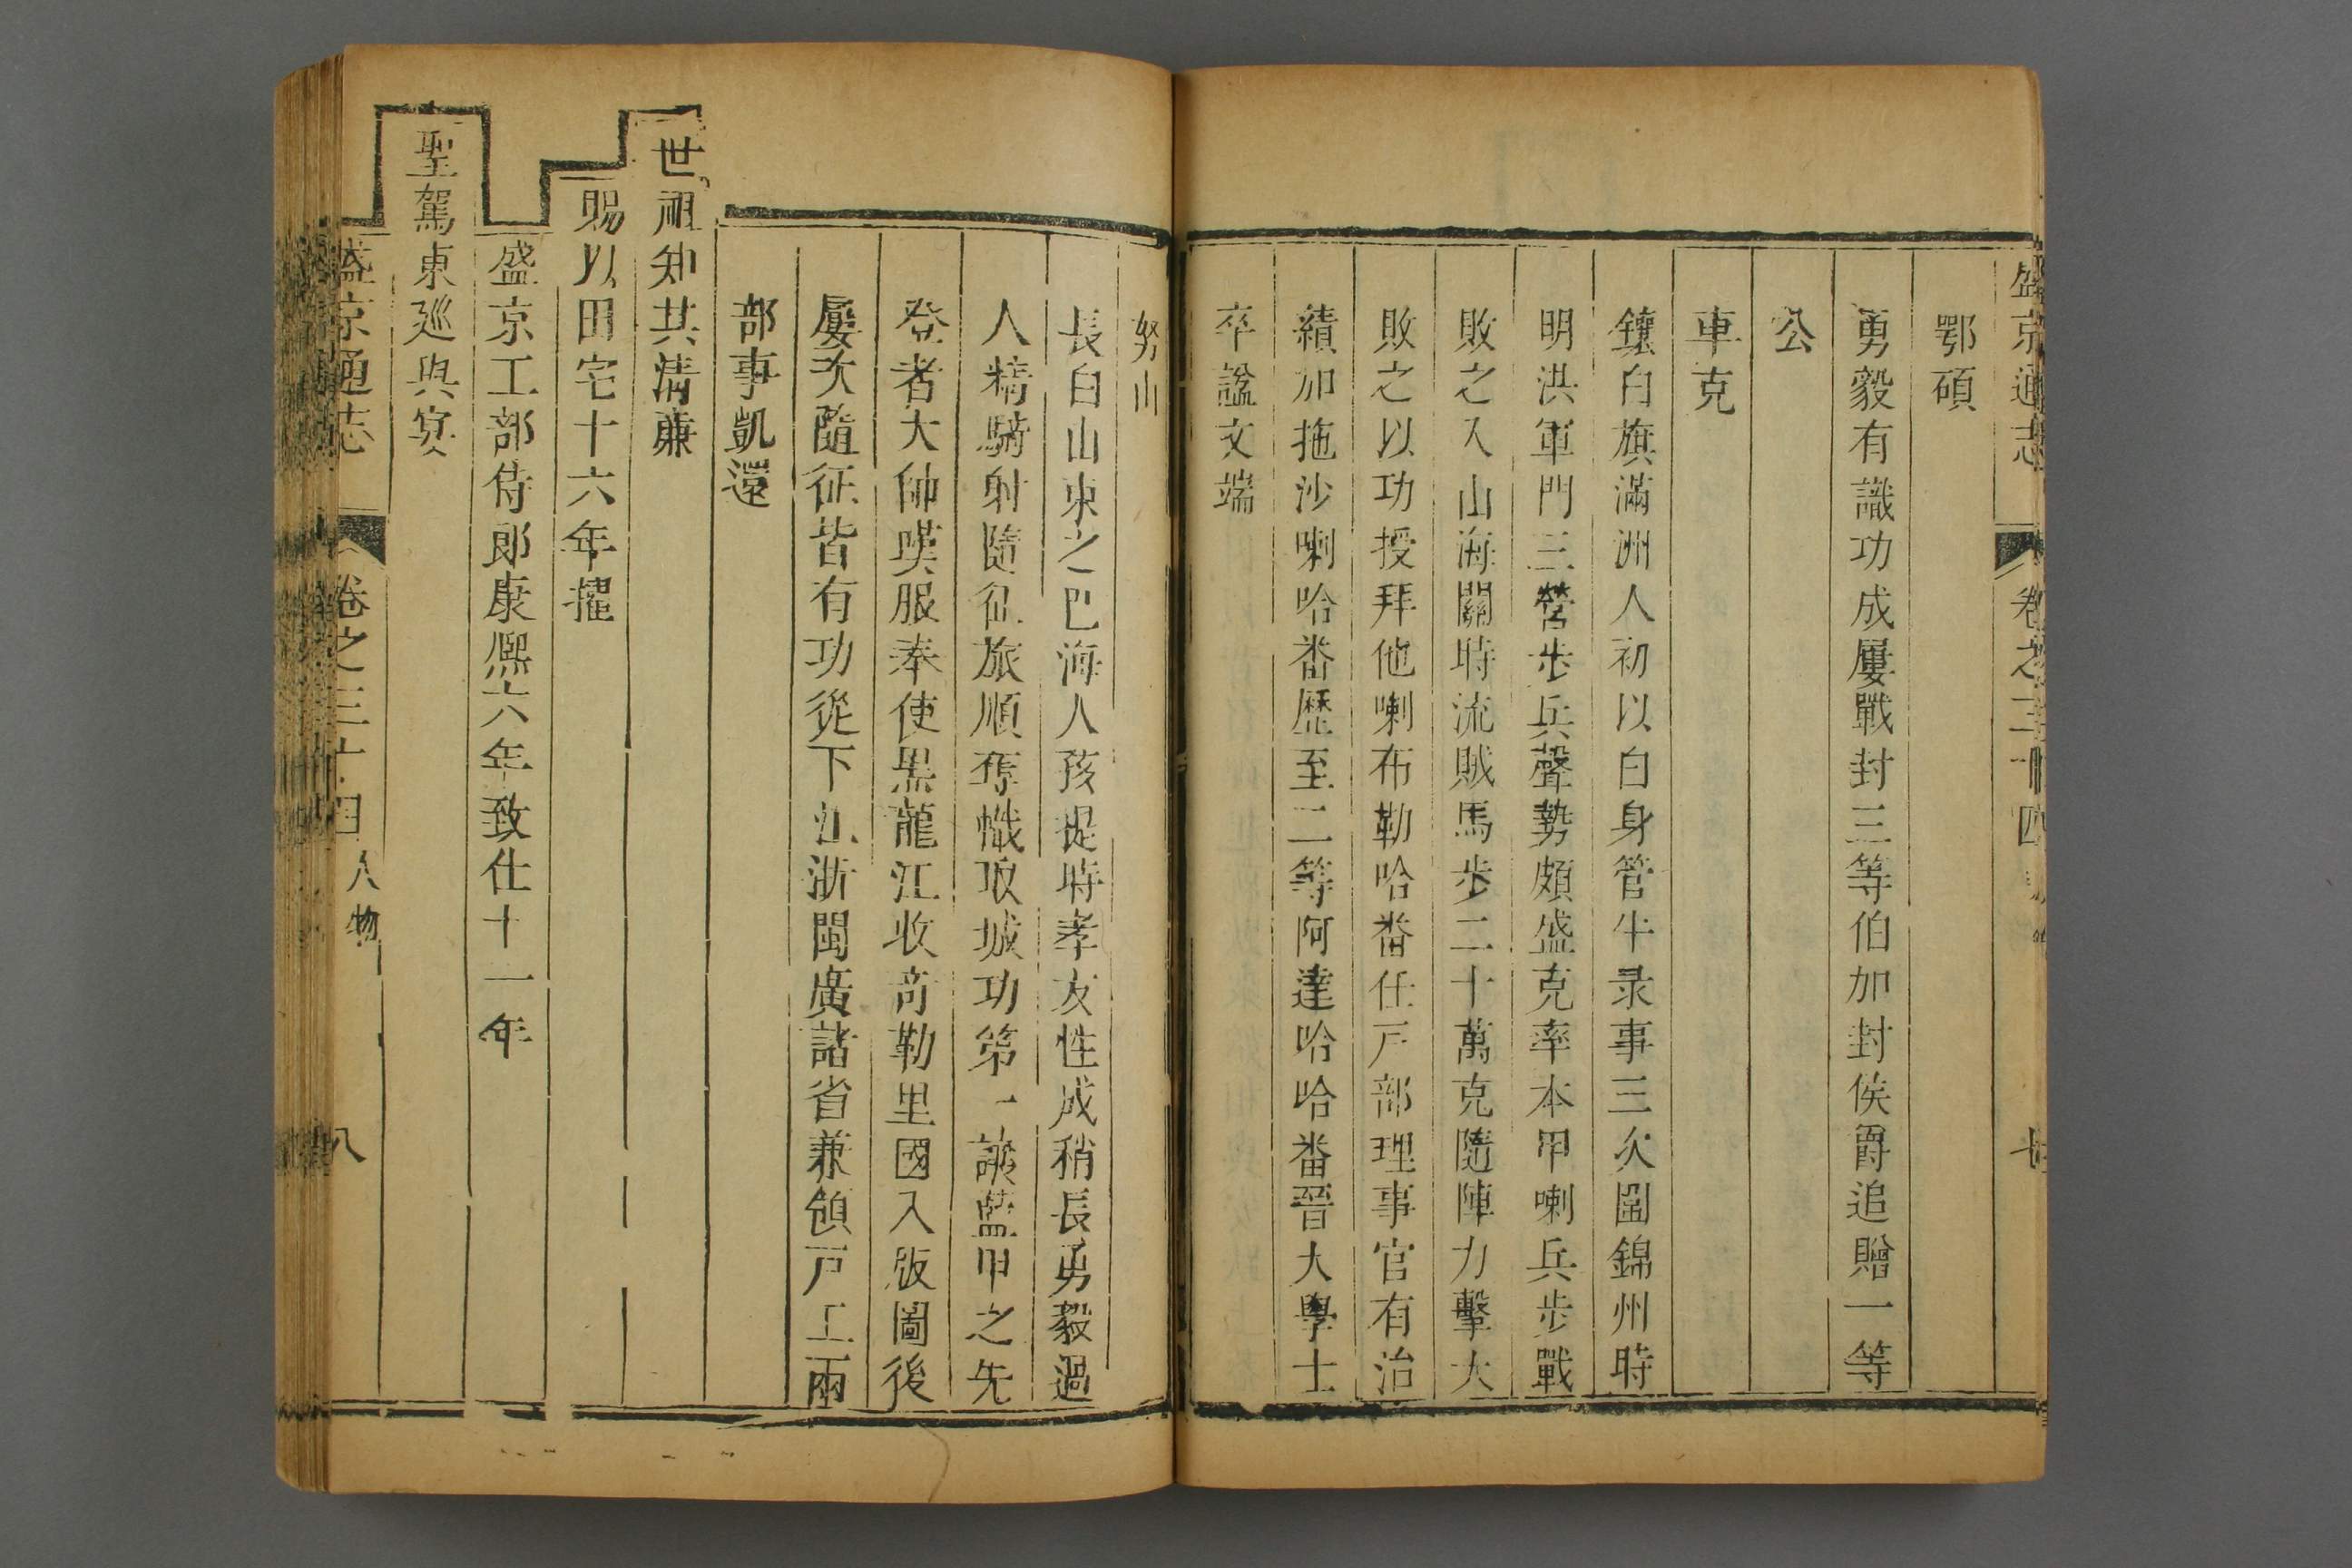 盛京通志 卷之三十四
鄂碩
勇毅有識功成屢戰封三等伯加封侯爵追贈一等
公
車克
鑲白旗滿洲人初以白身管牛录事三次圍錦州時
明洪軍門三營步兵聲勢頗盛克率本甲喇兵步戰
敗之入山海關時流賊馬步二十萬克隨陣力擊大
敗之以功授拜他喇布勒哈番任戸部理事官有治
績加拖沙喇哈番歷至二等阿達哈哈番晉大學士
卒諡文端
努山
長白山東之巴海人孩提時孝友性成稍長勇毅過
人精騎射隨征旅順奪幟取城功第一誠藍甲之先
登者大帥嘆服奉使黑龍江收奇勒里國入版圖後
屢次隨征皆有功從下江浙閩廣諸省兼領戸工兩
部事凱還
世祖知其清廉
賜以田宅十六年擢
盛京工部侍郎康熙六年致仕十一年
聖駕東巡與宴
盛京通志 卷之三十四 人物 八